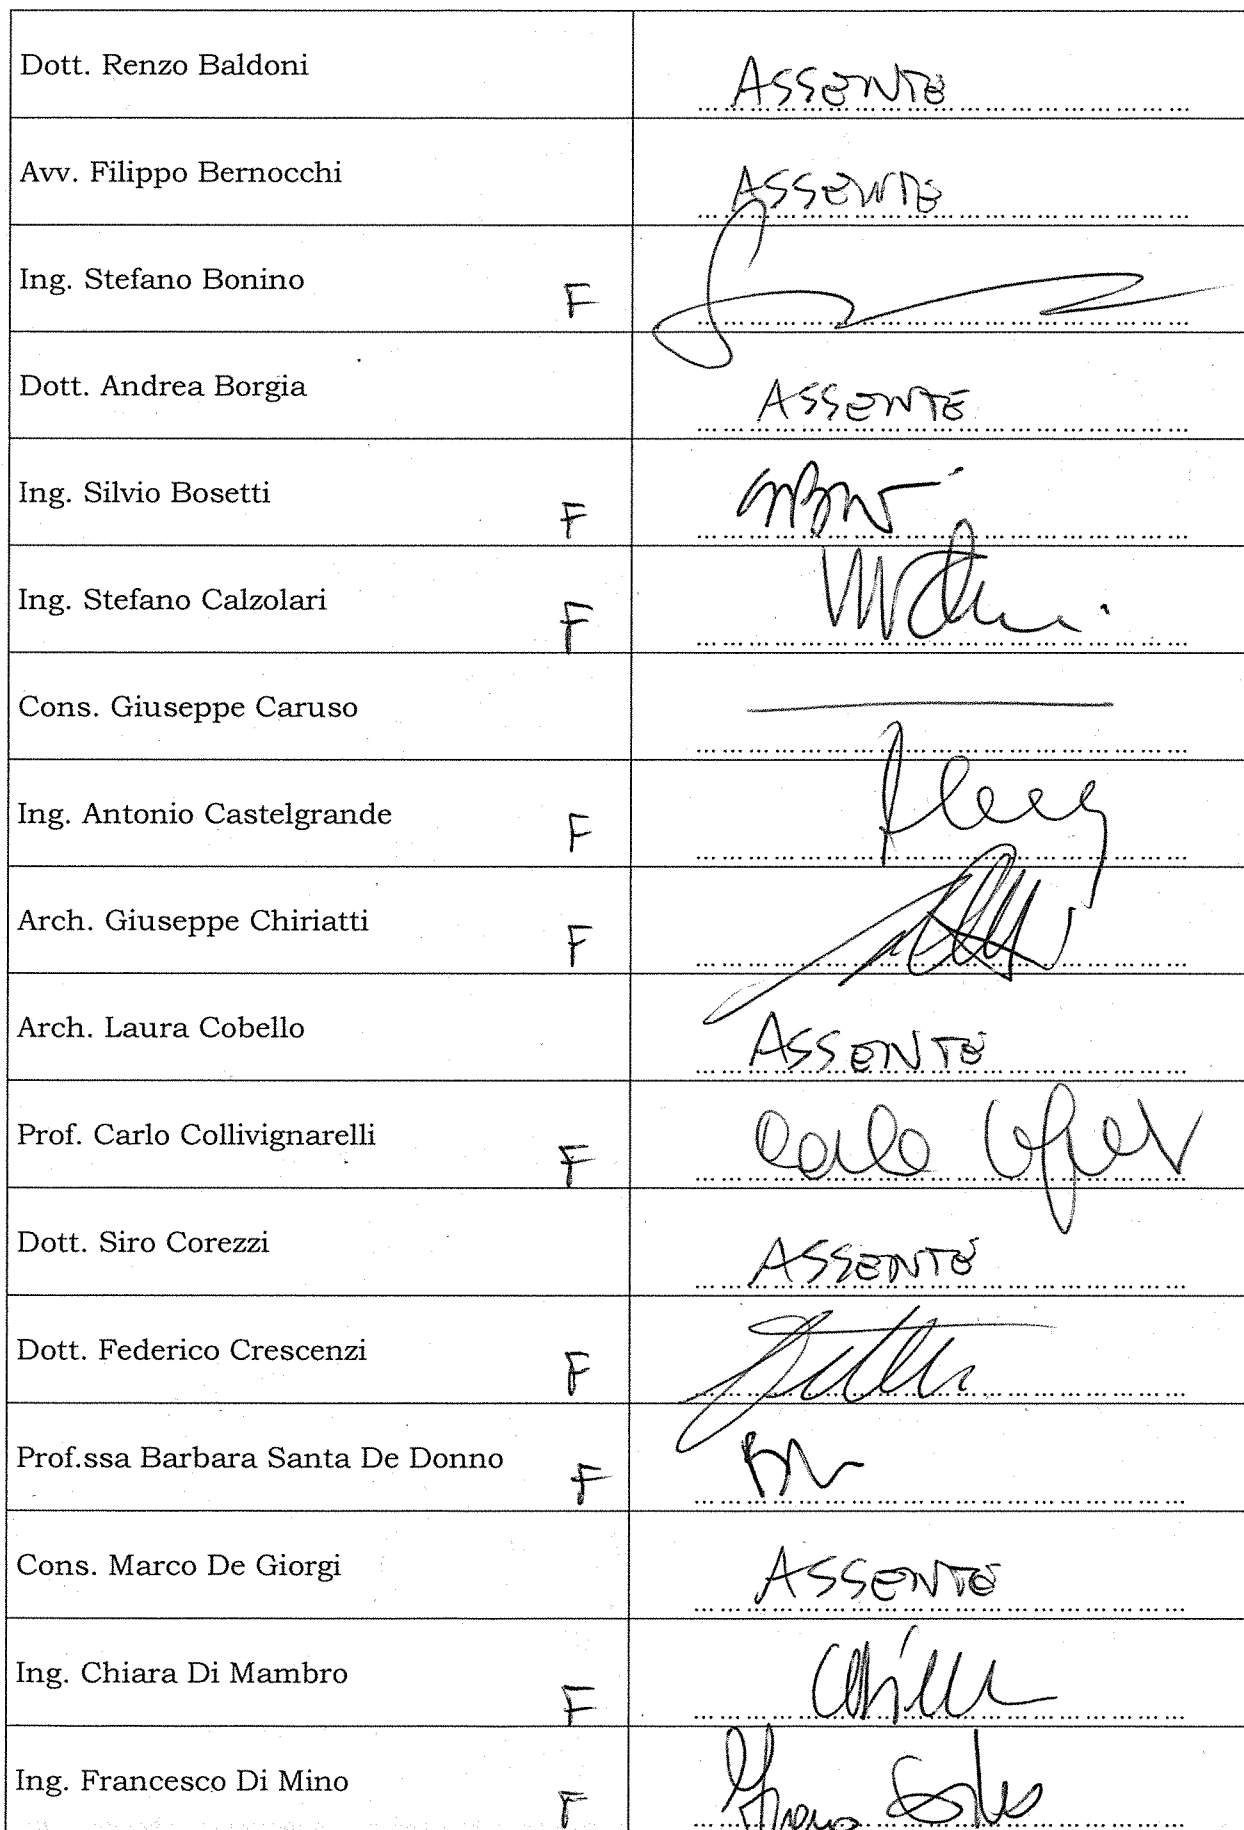 Dott. Renzo Baldoni ASSENTE
Avv. Filippo Bernocchi ASSENTE
Ing. Stefano Bonino F
Dott. Andrea Borgia ASSENTE
Ing. Silvio Bosetti F
Ing. Stefano Calzolari F
Cons. Giuseppe Caruso
Ing. Antonio Castelgrande F
Arch. Giuseppe Chiriatti F
Arch. Laura Cobello ASSENTE
Prof. Carlo Collivignarelli F Carlo
Dott. Siro Corezzi ASSENTE
Dott. Federico Crescenzi F
Prof.ssa Barbara Santa De Donno F
Cons. Marco De Giorgi ASSENTE
Ing. Chiara Di Mambro F
Ing. Francesco Di Mino F